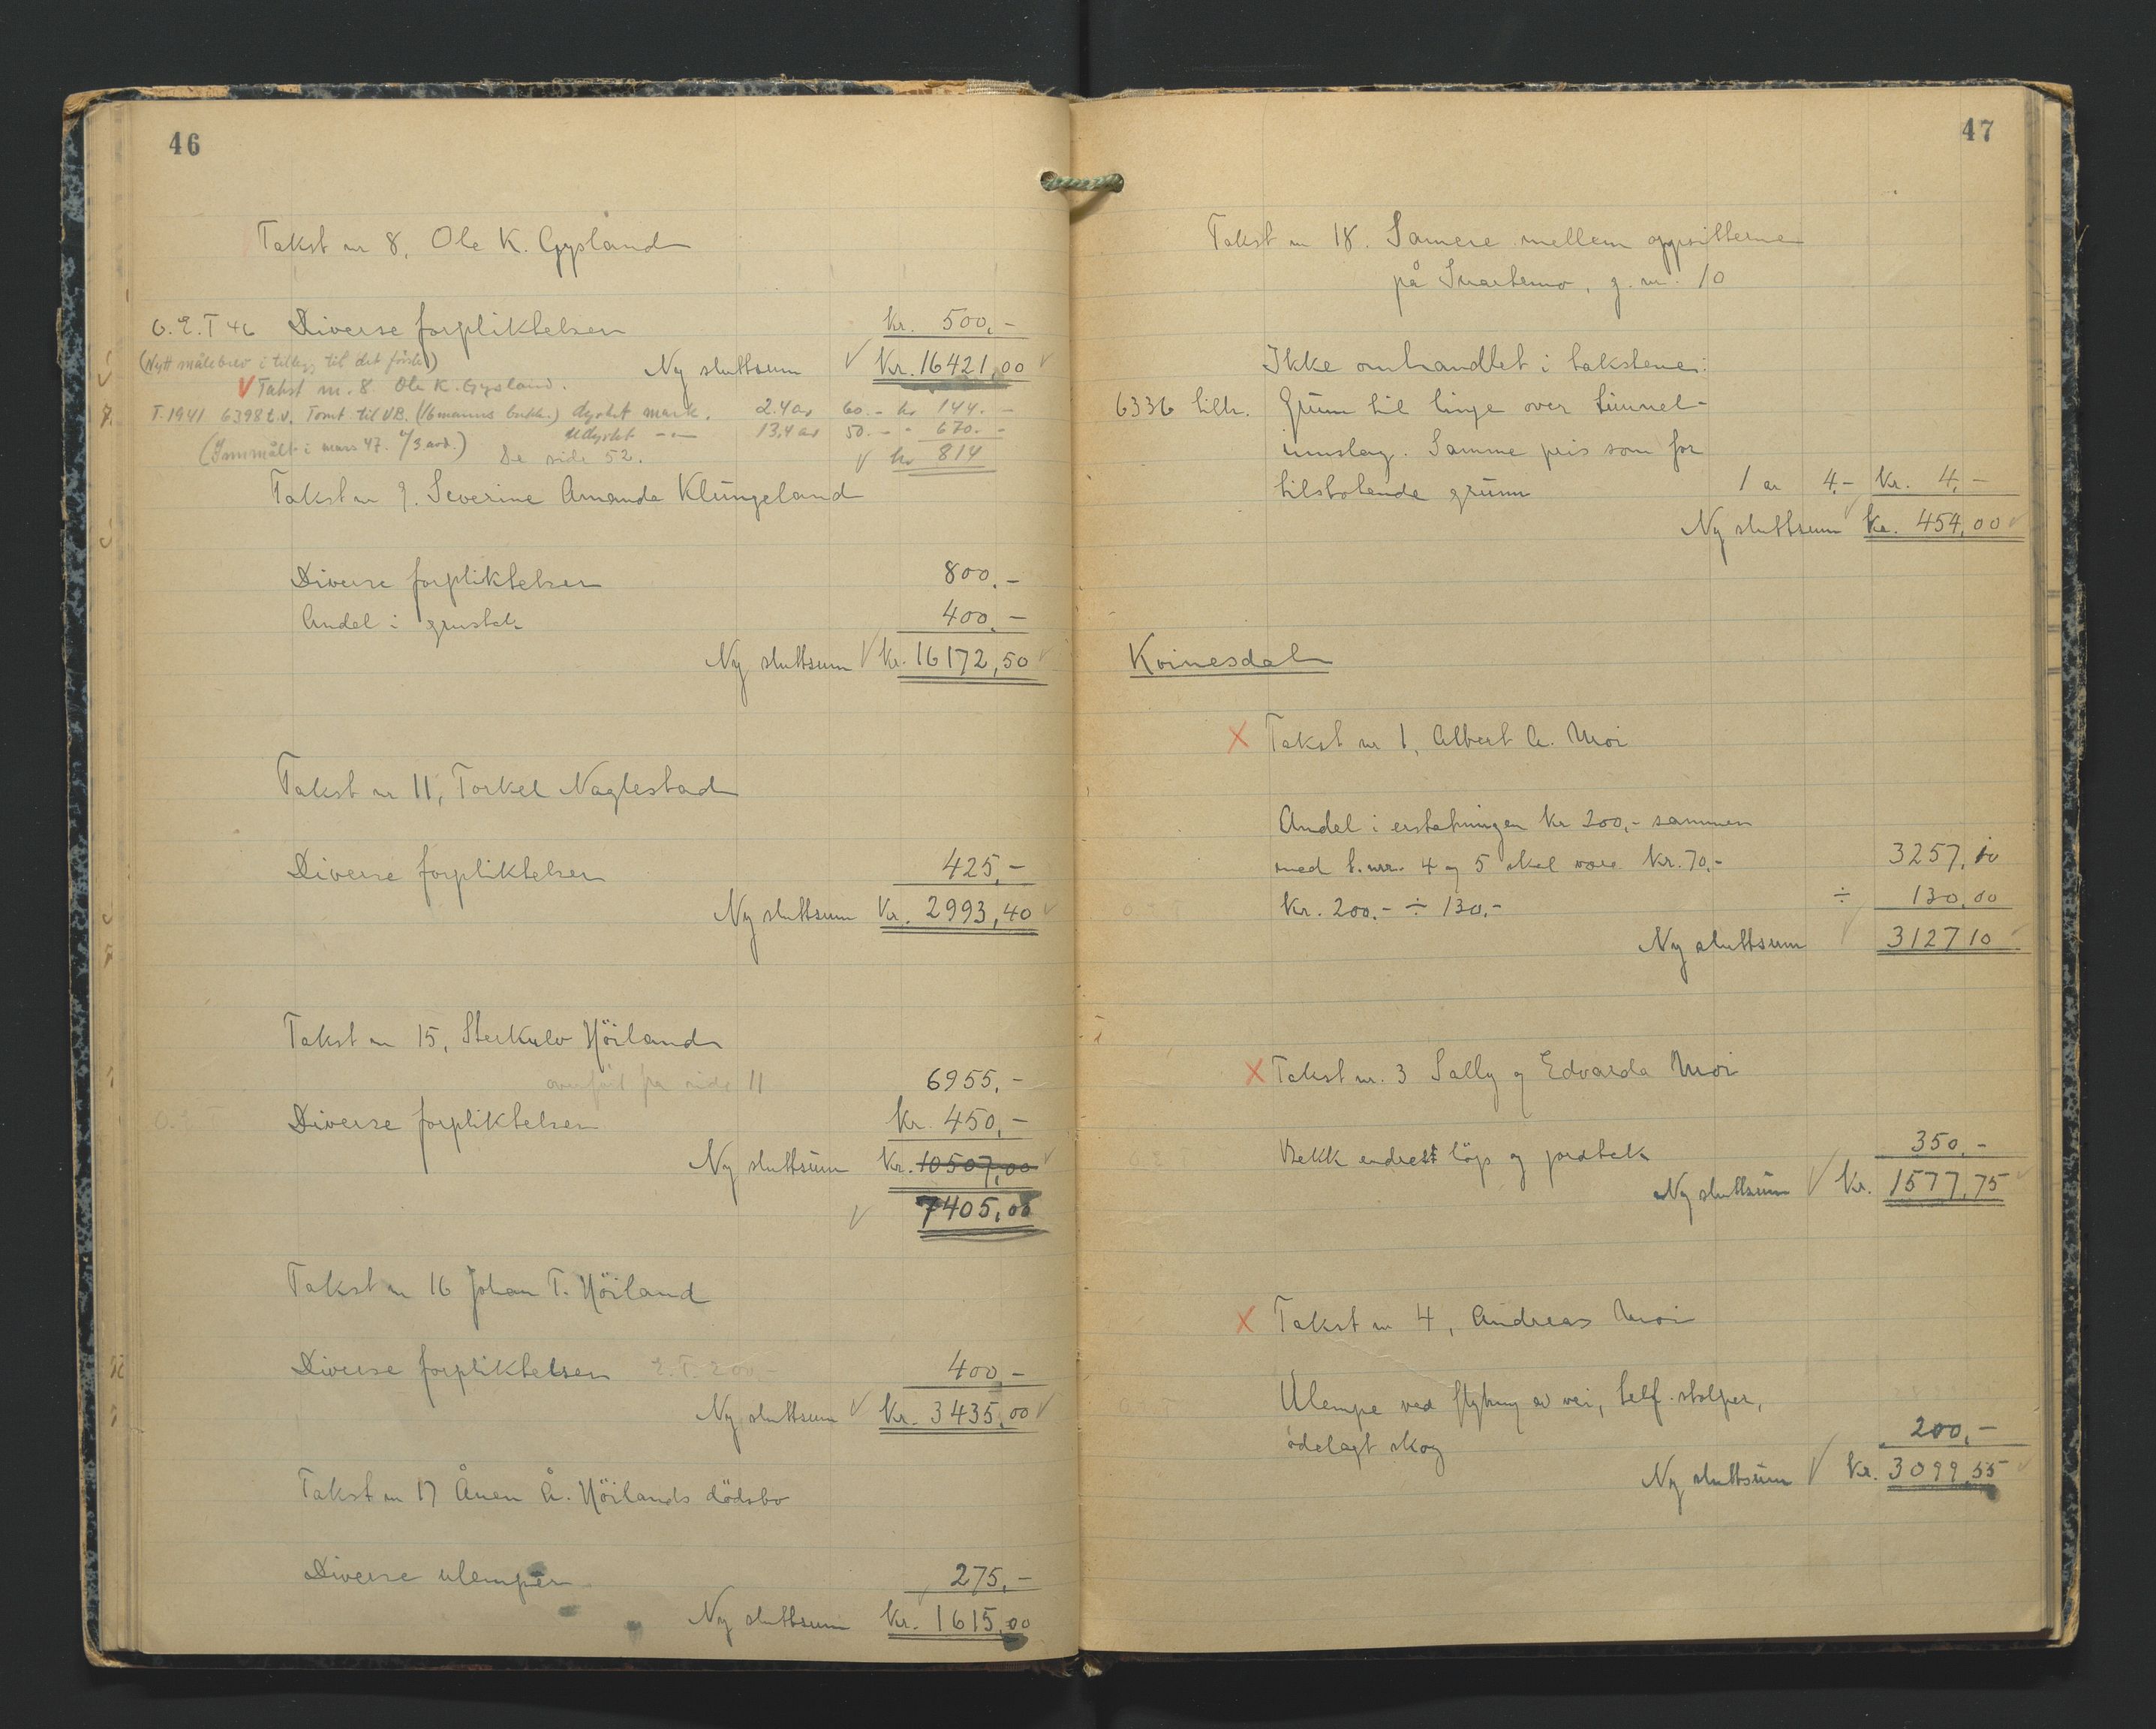 46
Takst nr 8, Ole K. Gysland
O.E.T 46 Diverse forpliktelser kr. 500,-
(Nytt målebrev i tillegg til det første)
Ny sluttsum Kr. 16421,00
Takst nr. 8 Ole K. Gysland.
T. 1941 6398 t.v. Tomt til VB. (16 manns brakke.) dyrket mark. 2.4 ar 60.- kr 144.-
Udyrket -"- 13,4 ar 50.- - 670.-
(Innmålt i mars 47. 4/3 avd.) Se side 52. kr 814
Takst nr 9. Severine Amanda Klungeland
Diverse forpliktelser 800.-
Andel i grustak 400.-
Ny sluttsum Kr. 16172,50
Takst nr 11, Torkel Naglestad
Diverse forpliktelser 425,-
Ny sluttsum Kr. 2993,40
Takst nr 15, Sterkulv Höiland
overført fra side 11 6955,-
Diverse forpliktelser Kr. 450,-
Ny sluttsum Kr. 10507,00
7405,00
Takst nr 16 Johan T. Höiland
Diverse forpliktelser E.T. 200,- 400,-
Ny sluttsum Kr. 3435,00
Takst nr 17 Ånen Å. Höilands dödsbo
Diverse ulemper 275,-
Ny sluttsum Kr. 1615,00
47
Takst nr 18. Sameie mellem oppsitterne
på Snartemo, g. nr. 10
Ikke omhandlet i takstene:
6336 tilh. Grunn til linje over tunnel-
innslag. Samme pris som for
tilstøtende grunn 1 ar 4.- Kr. 4,-
Ny sluttsum Kr. 454,00
Kvinesdal
X Takst nr 1, Albert A. Moi
Andel i erstatningen kr 200,- sammen
med t.nr. 4 og 5 skal være Kr. 70,- 3257,10
Kr. 200.- ÷ 130,- ÷ 130,00
Ny sluttsum 3127 10
X Takst nr. 3 Sally og Edvarda Moi
Bekk endret löp og jordtak 350,-
Ny sluttsum Kr. 1577,75
X Takst nr 4, Andreas Moi
Ulempe ved flytning av vei, telf. stolper,
ödelagt skog 200,-
Ny sluttsum Kr. 3099,55